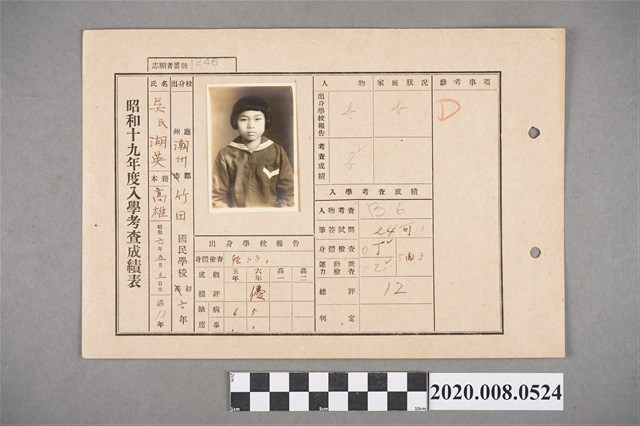 志願者番號 246
昭和十九年度入學考查成績表
氏名 吳氏湖英
本籍 高雄
昭和 六年 五月
出身校
州廳 潮州 市郡 竹田 國民學校
初高 六年
出身學校報告
身體檢查
成績 概評 五年 六年 高一 高二
優
缺席 病 6 5
事
人物 家庭狀況
出身學校報告
考查成績
入學考查成績
人物考查 B 6
筆答試問 24 可
身體檢查
運動能力檢查
總評 12
判定
參考事項
D
1cm 5cm 10cm
2020.008.0524